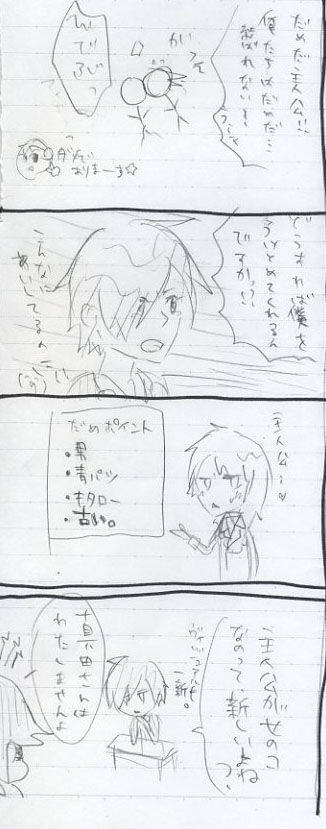 だめだ主人公!!
俺たちはだめだ…
結ばれない!
がっ
ひでぶっ
ダメで
おりまーす☆
どうすれば僕を
うけとめてくれるん
ですかっ!?
こんなに
あいしてるんに
主人公…♥
だめポイント
・男
・青パツ
・キタロー
・古い。
主人公が女のコ
なのって、新しいよね
真田さんは
わたしませんよ